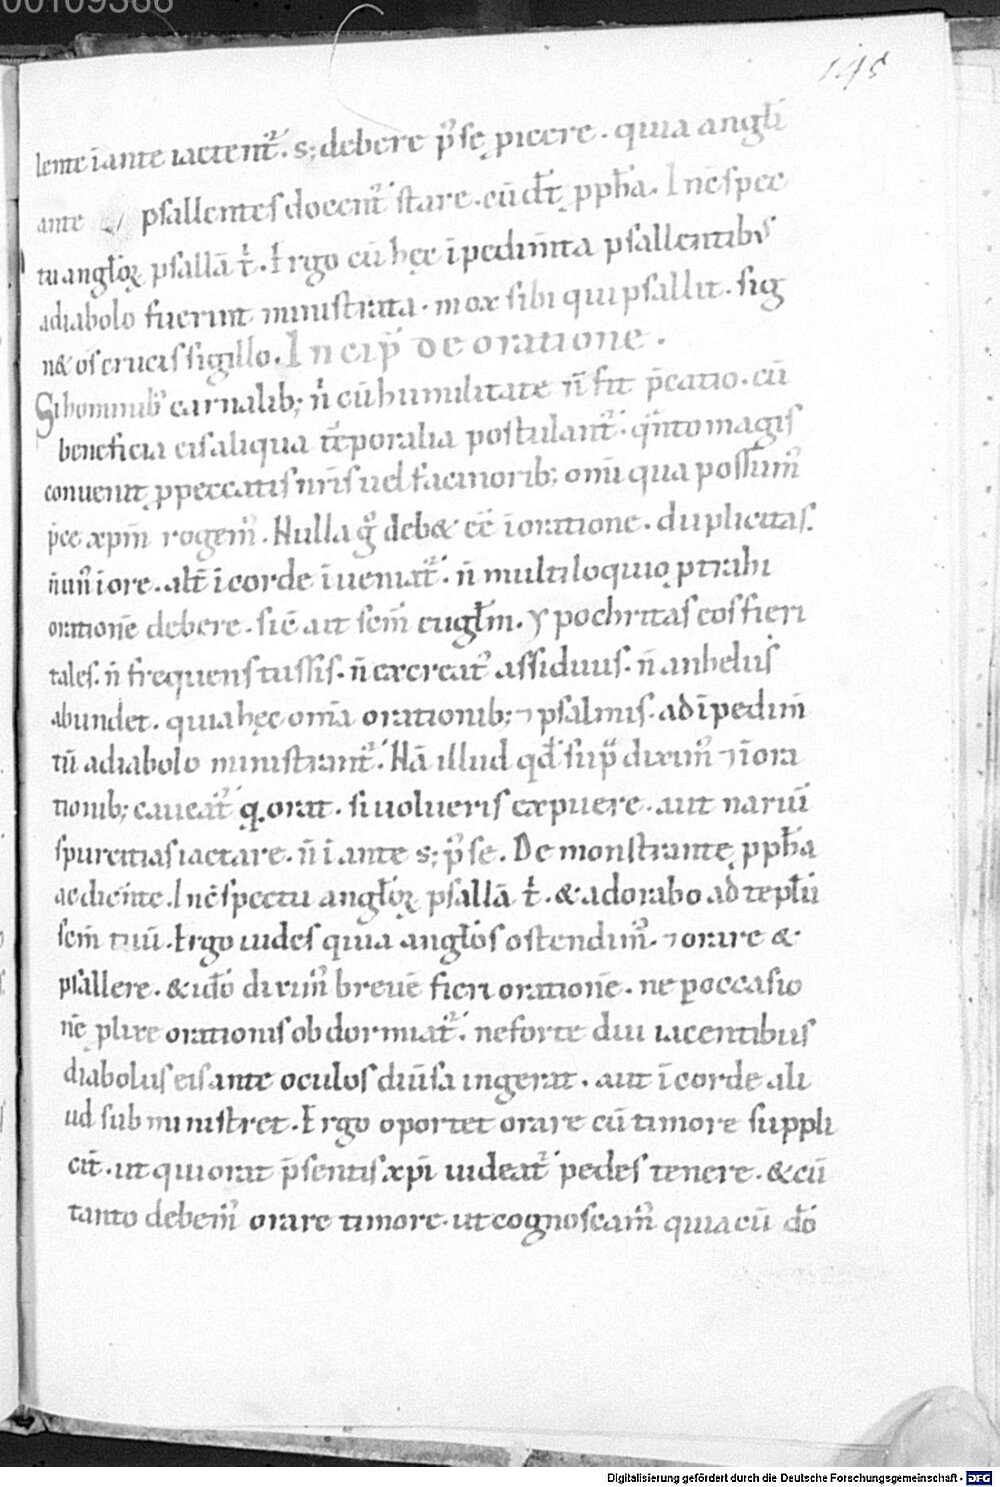 00109366
195
lente īante iactent᷑. s; debere p̾ se ꝓicere. quia angli
ante psallentes docent᷑ stare. cū dt̄ ꝓph̄a. In c̄spec
tu angl̄oꝝ psallā t̄. Ergo cū hęc īpedim̄ta psallentib᷒
adiabolo fuerint ministrata. mox sibi qui psallit. sig
n& os̄ crucis sigillo. Incip̄ de oratione.
Si hominib᷒ carnalib; n̄ cū humilitate n̄ fit p̄catio. cū
beneficia eis aliqua tēporalia postulant᷑. qn̄to magis
conuenit ꝓ peccatis nr̄is uel facinorib; omī qua possum᷒
p̄ce xpm̄ rogem᷒. Nulla g̊ deb& eē ī oratione. duplicitas.
n̄ un̄ iore. alt̄ icorde īueniat᷑. n̄ multiloquio ꝓtrahi
orationē debere. sic̄ ait scm̄ eugl̄m. ypochritas eos fieri
tales. n̄ frequens tussis. n̄ excreat᷒ assiduus. n̄ anhelus
abundet. quia hęc om̄ia orationib; ⁊ psalmis. ad īpedim̄
tū adiabolo ministrant᷑. Nā illud qd̄ sup̄ dixim᷒ ⁊ ī ora
tionib; caueat᷑ q orat. si uolueris expuere. aut nariū
spurcitias iactare. n̄ īante s; p̾ se. Demonstrante ꝓph̄a
ac dicēnte. In c̄spectu angl̄oꝝ psallā t̄. & adorabo ad tēpl̄ū
scm̄ tuū. Ergo uides quia angl̄os ostendim᷒. ⁊ orare &
psallere. & id̄o dixim᷒ breuē fieri orationē. ne ꝑ occasio
nē ꝓlixe orationis obdormiat᷑. ne forte diu iacentibus
diabolus eis ante oculos diūsa ingerat. aut īcorde ali
ud subministret. Ergo oportet orare cū timore suppli
cit̄. ut qui orat p̄sentis xp̄i uideat᷑ pedes tenere. & cū
tanto debem᷒ orare timore. ut cognoscam᷒ quia cū dō
Digitalisierung gefördert durch die Deutsche Forschungsgemeinschaft - DFG